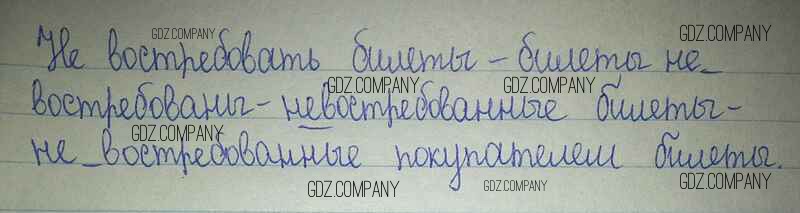 Не востребовать билеты - билеты не_
востребованы - невостребованные билеты -
не_востребованные покупателем билеты.
GDZ.COMPANY
GDZ.COMPANY
GDZ.COMPANY
GDZ.COMPANY
GDZ.COMPANY
GDZ.COMPANY
GDZ.COMPANY
GDZ.COMPANY
GDZ.COMPANY
GDZ.COMPANY